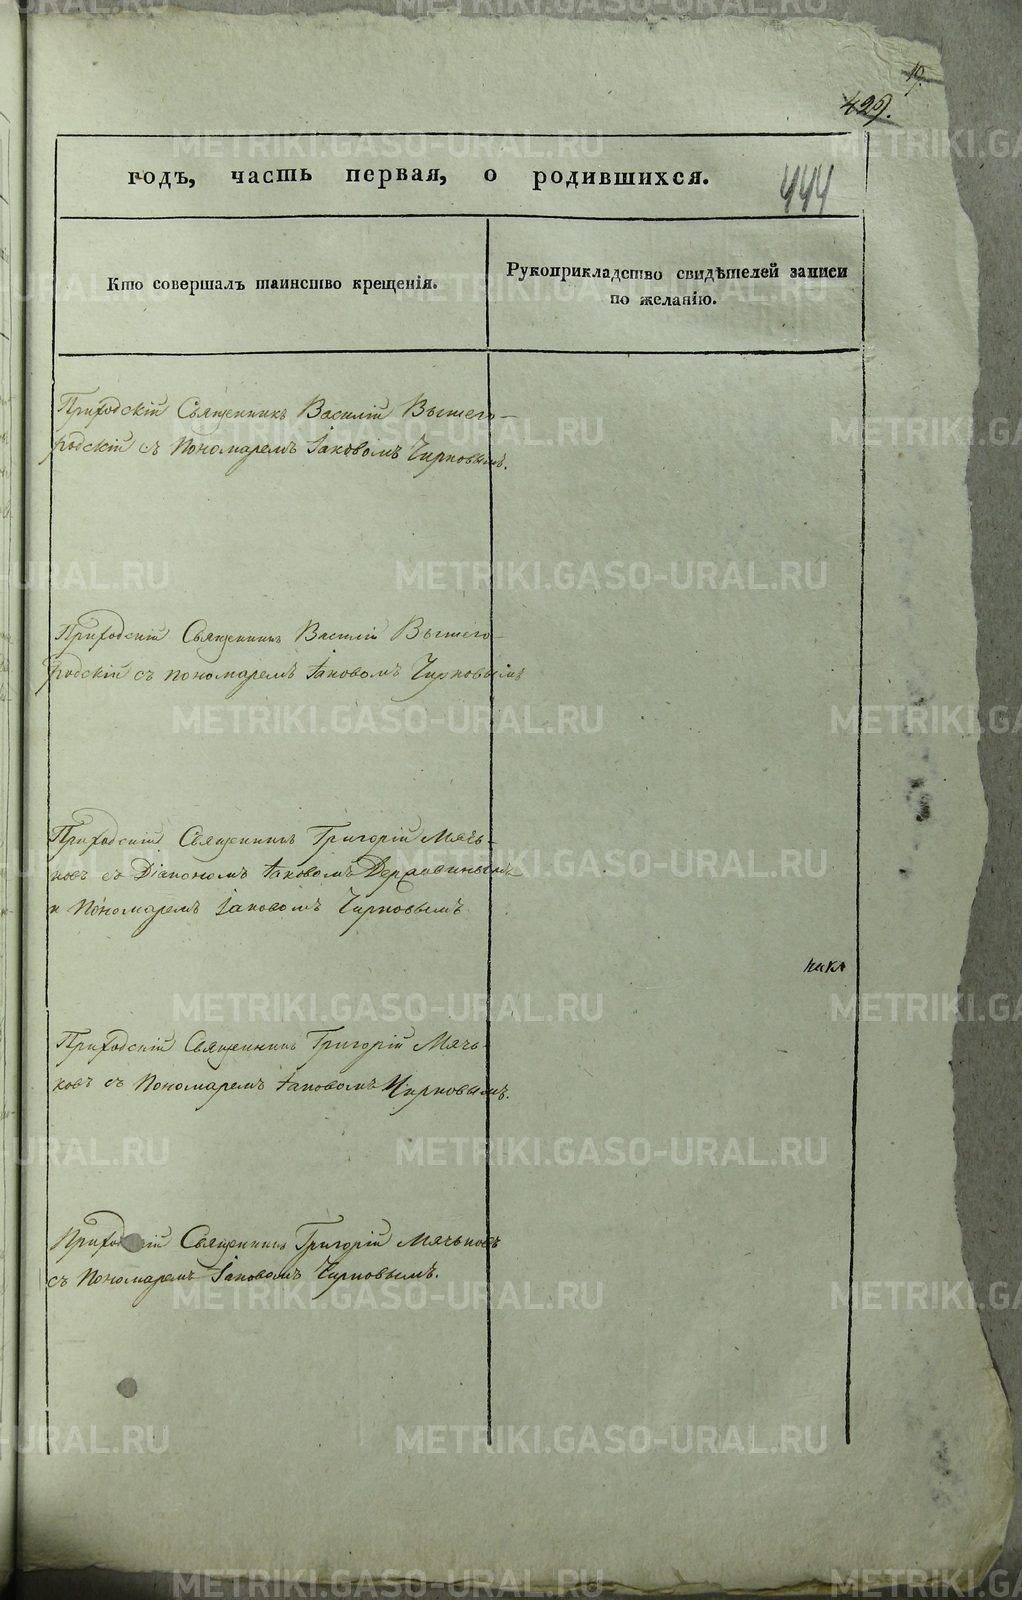 19.
429.
444
годъ, часть первая, о родившихся.
Кто совершалъ таинство крещенія.
Рукоприкладство свидѣтелей записи
по желанію.
Приходскій Священникъ Василій Вышего-
родскій съ Пономаремъ Іаковомъ Чирковымъ.
Приходскій Священникъ Василій Вышего-
родскій съ пономаремъ Іаковомъ Чирковымъ
Приходскій Священникъ Григорій Мячь-
ковъ съ Діакономъ Іаковомъ Державинымъ
и Пономаремъ Іаковомъ Чирковымъ.
Приходскій Священникъ Григорій Мячь-
ковъ съ Пономаремъ Іаковомъ Чирковымъ.
Приходскій Священникъ Григорій Мячьковъ
съ Пономаремъ Іаковомъ Чирковымъ.
METRIKI.GASO-URAL.RU